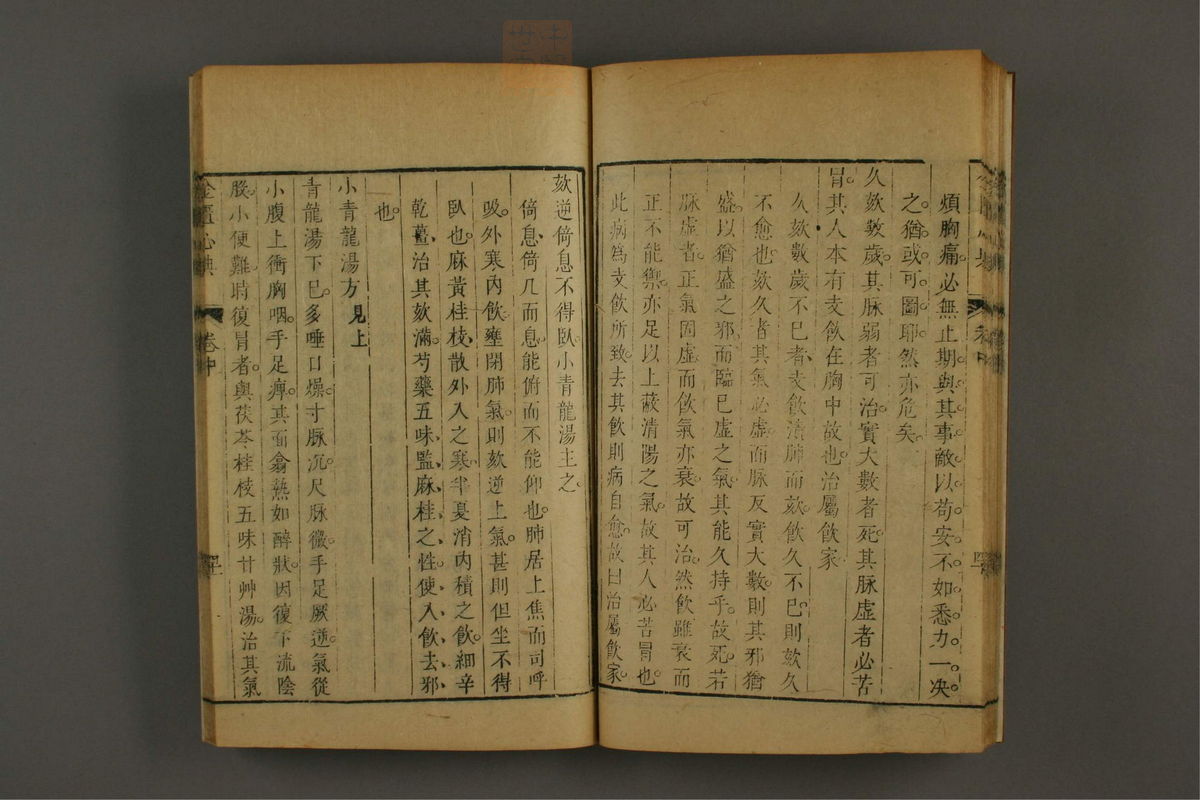 煩胸痛。必無止期。與其事敵以苟安。不如悉力一。決。
之。猶或可。圖耶。然亦危矣。
久欬數歲。其脉弱者可治。實大數者死。其脉虛者必苦
冒。其人本有支飲在胸中故也。治屬飲家
久欬數歲不已者。支飲漬肺而欬。飲久不已。則欬久
不愈也。欬久者。其氣必虛。而脉反實大數。則其邪猶
盛。以猶盛之邪。而臨已虛之氣。其能久持乎。故死。若
脉虛者。正氣固虛。而飲氣亦衰。故可治。然飲雖衰而
正不能禦。亦足以上蔽清陽之氣。故其人必苦冒也。
此病爲支飲所致。去其飲則病自愈。故曰治屬飲家。
欬逆倚息不得臥。小青龍湯主之。
倚息。倚几而息。能俯而不能仰也。肺居上焦而司呼
吸。外寒內飲。壅閉肺氣。則欬逆上氣。甚則但坐不得
臥也。麻黃桂枝。散外入之寒。半夏消內積之飲。細辛
乾薑。治其欬滿。芍藥五味。監麻桂之性。使入飲去邪
也。
小青龍湯方 見上
青龍湯下已。多唾口燥。寸脉沉。尺脉微。手足厥逆。氣從
小腹上衝胸咽。手足痺。其面翕熱如醉狀。因復下流陰
股。小便難。時復冒者。與茯苓桂枝五味甘艸湯。治其氣
金匱心典
卷中